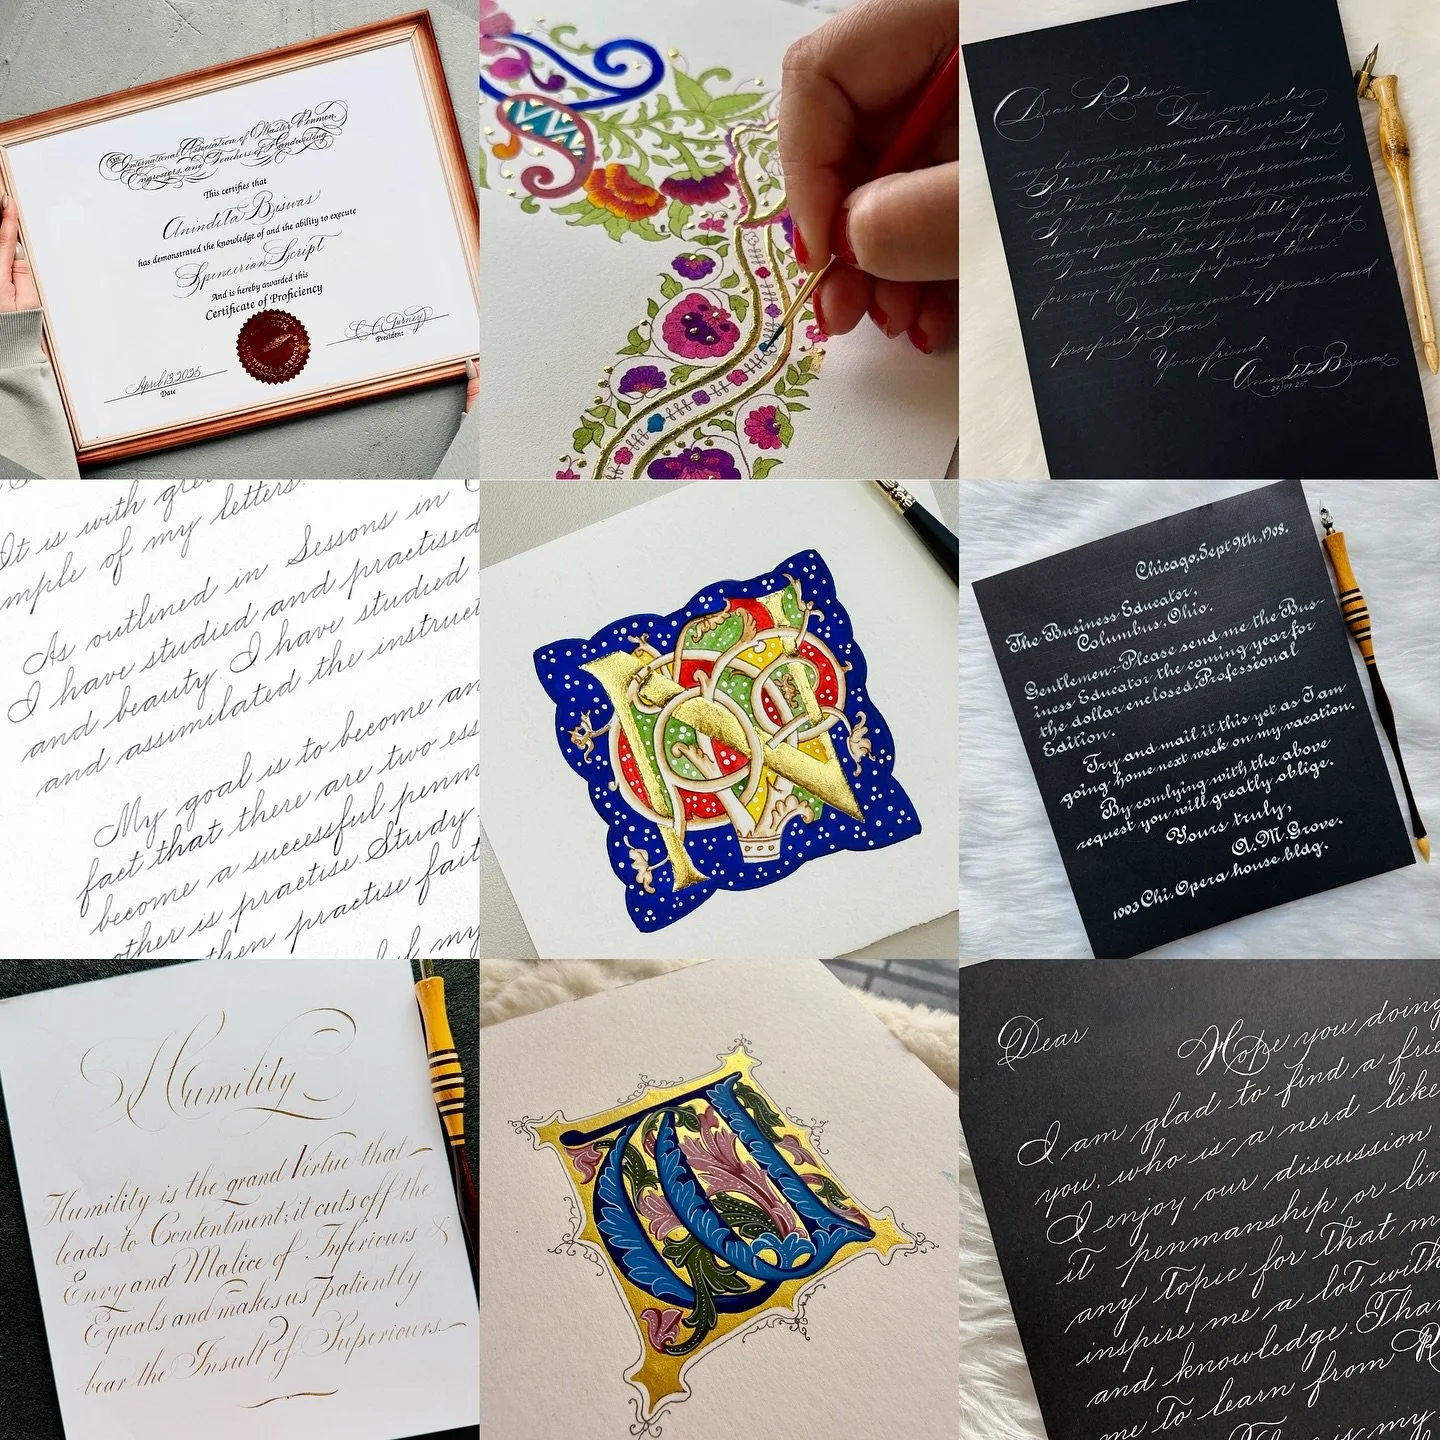 The International Association of Master Penmen,
Engrossers, and Teachers of Handwriting
This certifies that
Anindita Biswas
has demonstrated the knowledge of and the ability to execute
Spencerian Script
And is hereby awarded this
Certificate of Proficiency
April 13, 2025
Date
President
Dear Readers:-
This concludes
my lessons in ornamental writing
I trust that the time you have spent
on them has not been spent in vain
If by these lessons, you have received
any inspiration to become better penmen
I assure you that I feel amply paid
for my efforts in preparing them.
Wishing you happiness and
prosperity, I am
Your friend
Anindita Biswas
It is with
mple of my letters.
As outlined in Lessons in
I have studied and practised
and beauty. I have studied
and assimilated the instruct
My goal is to become an
fact that there are two ess
become a successful penm
other is practise. Study
then practise fait
my
N
Chicago, Sept 9th, 1908.
The Business Educator,
Columbus, Ohio.
Gentlemen:-Please send me the Bus-
iness Educator the coming year for
the dollar enclosed. Professional
Edition.
Try and mail it this yet as I am
going home next week on my vacation.
By comlying with the above
request you will greatly oblige.
Yours truly,
A.M. Grove.
1003 Chi. Opera house bldg.
Humility
Humility is the grand Virtue that
leads to Contentment; it cuts off the
Envy and Malice of Inferiours &
Equals and makes us patiently
bear the Insult of Superiours.
Dear
Hope you doing
I am glad to find a frie
you, who is a nerd like
I enjoy our discussion
it penmanship or lin
any topic for that m
inspire me a lot with
and knowledge. Than
me to learn from
is my